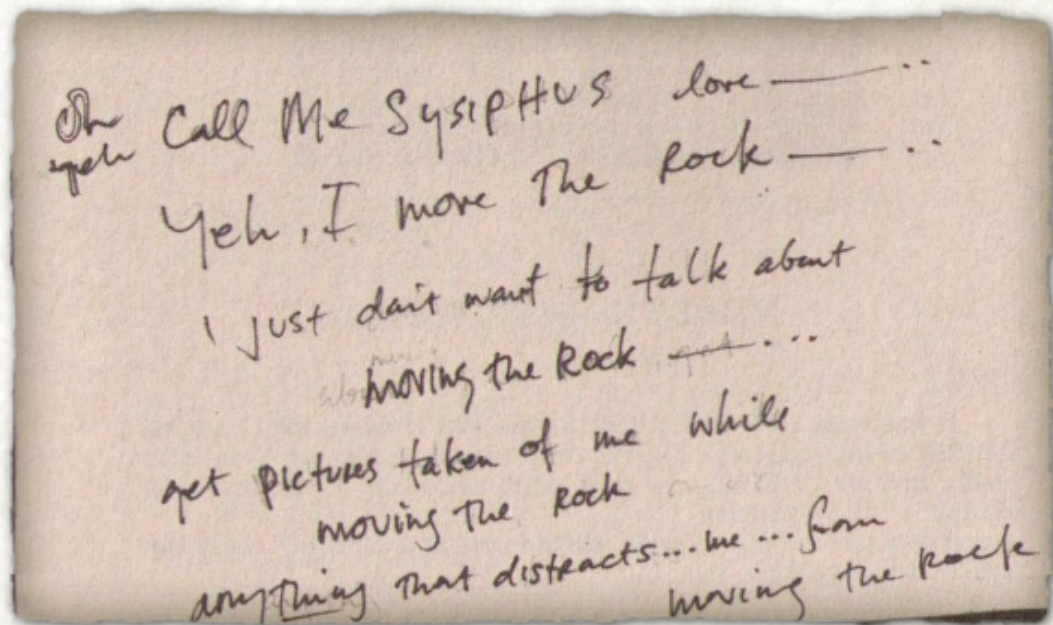 Oh yeh Call Me SysipHus love —— ..
Yeh, I move The Rock —— ..
I just don't want to talk about
moving the Rock —— ...
get pictures taken of me while
moving The Rock
anything that distracts...me...from
moving the Rock